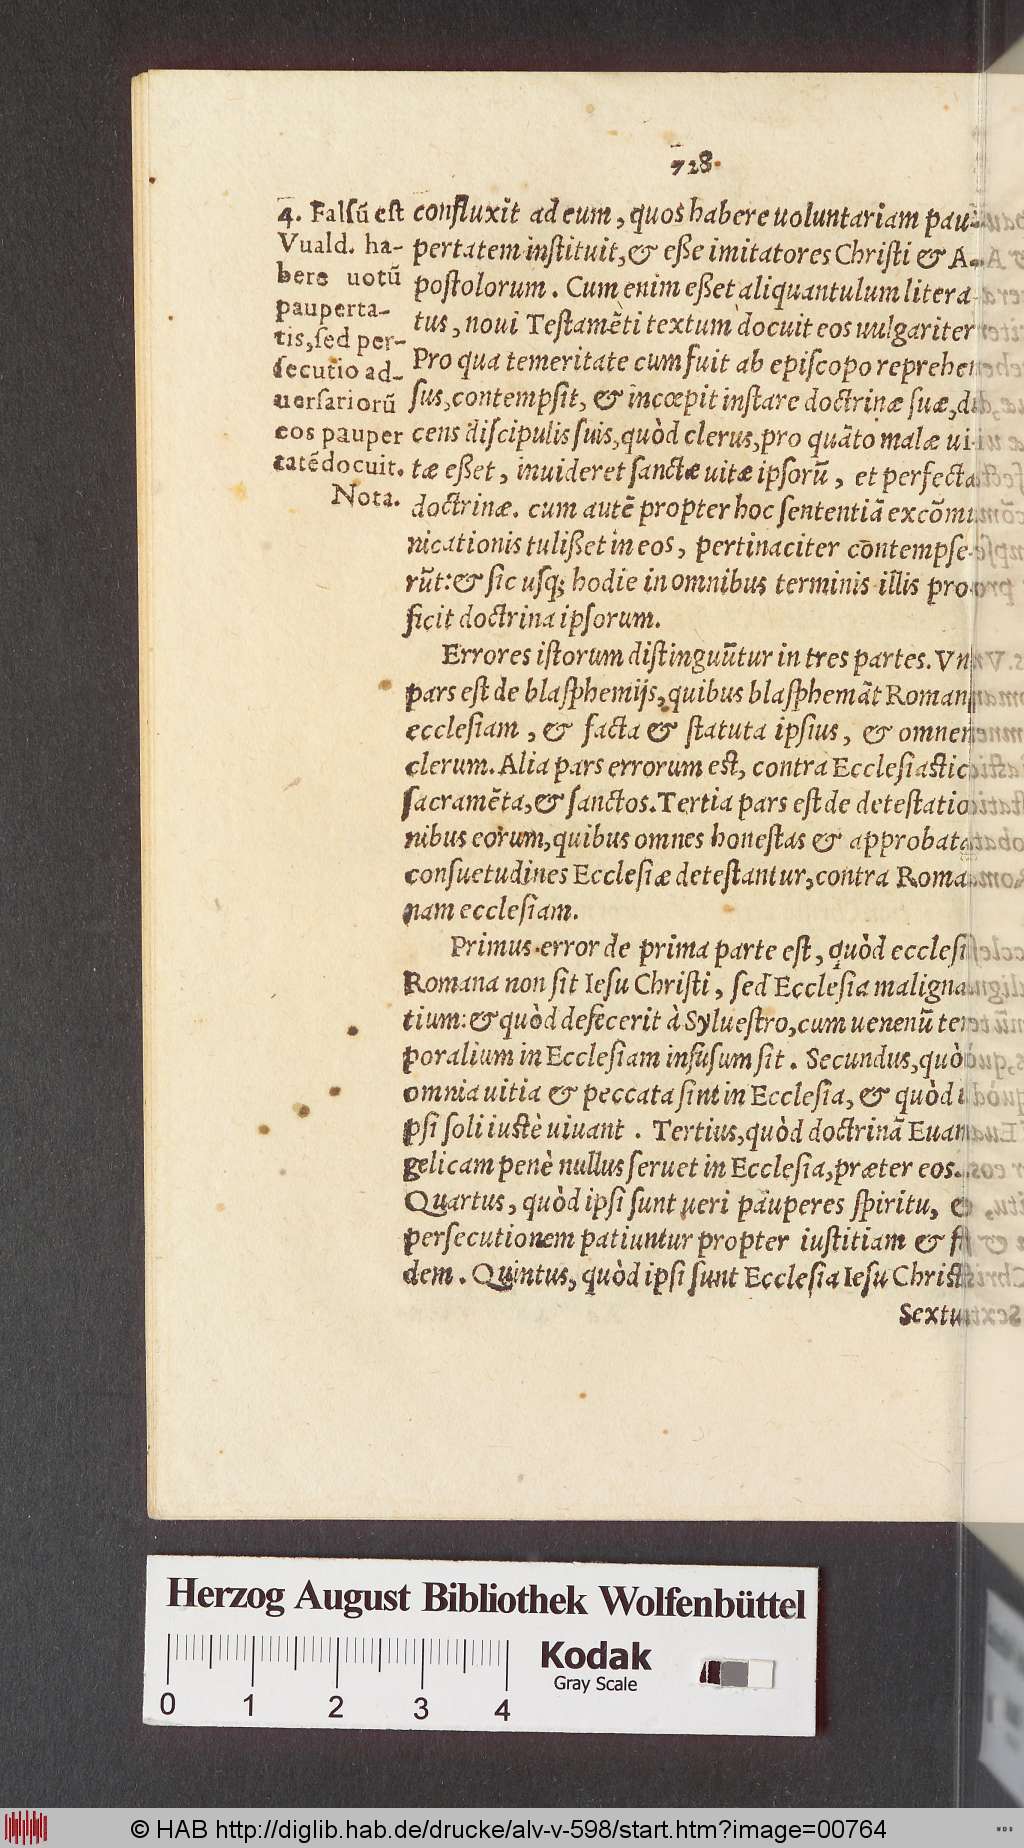 728.
4. Falsũ est
Vuald. ha-
bere uotũ
pauperta-
tis, sed per-
secutio ad-
uersariorũ
eos pauper
tatẽ docuit.
Nota.
confluxit ad eum, quos habere uoluntariam pau-
pertatem instituit, & eße imitatores Christi & A-
postolorum. Cum enim eßet aliquantulum litera-
tus, noui Testamẽti textum docuit eos uulgariter
Pro qua temeritate cum fuit ab episcopo reprehen
sus, contempsit, & incœpit instare doctrinæ suæ, di
cens discipulis suis, quòd clerus, pro quãto malæ ui-
tæ eßet, inuideret sanctæ uitæ ipsorũ, et perfectæ
doctrinæ. cum autẽ propter hoc sententiã excõmu
nicationis tulißet in eos, pertinaciter contempse-
rũt: & sic usq; hodie in omnibus terminis illis pro-
ficit doctrina ipsorum.
Errores istorum distinguũtur in tres partes. Vna
pars est de blasphemijs, quibus blasphemãt Romanã
ecclesiam, & facta & statuta ipsius, & omnem
clerum. Alia pars errorum est, contra Ecclesiastica
sacramẽta, & sanctos. Tertia pars est de detestatio
nibus eorum, quibus omnes honestas & approbatas
consuetudines Ecclesiæ detestantur, contra Roma-
nam ecclesiam.
Primus error de prima parte est, quòd ecclesi
Romana non sit Iesu Christi, sed Ecclesia maligna
tium: & quòd defecerit à Syluestro, cum uenenũ tem
poralium in Ecclesiam infusum sit. Secundus, quòd
omnia uitia & peccata sint in Ecclesia, & quòd i
psi soli iustè uiuant. Tertius, quòd doctrinã Euan
gelicam penè nullus seruet in Ecclesia, præter eos.
Quartus, quòd ipsi sunt ueri pauperes spiritu, &
persecutionem patiuntur propter iustitiam & fi
dem. Quintus, quòd ipsi sunt Ecclesia Iesu Christi
Sextus
Herzog August Bibliothek Wolfenbüttel
0 1 2 3 4
Kodak
Gray Scale
© HAB http://diglib.hab.de/drucke/alv-v-598/start.htm?image=00764